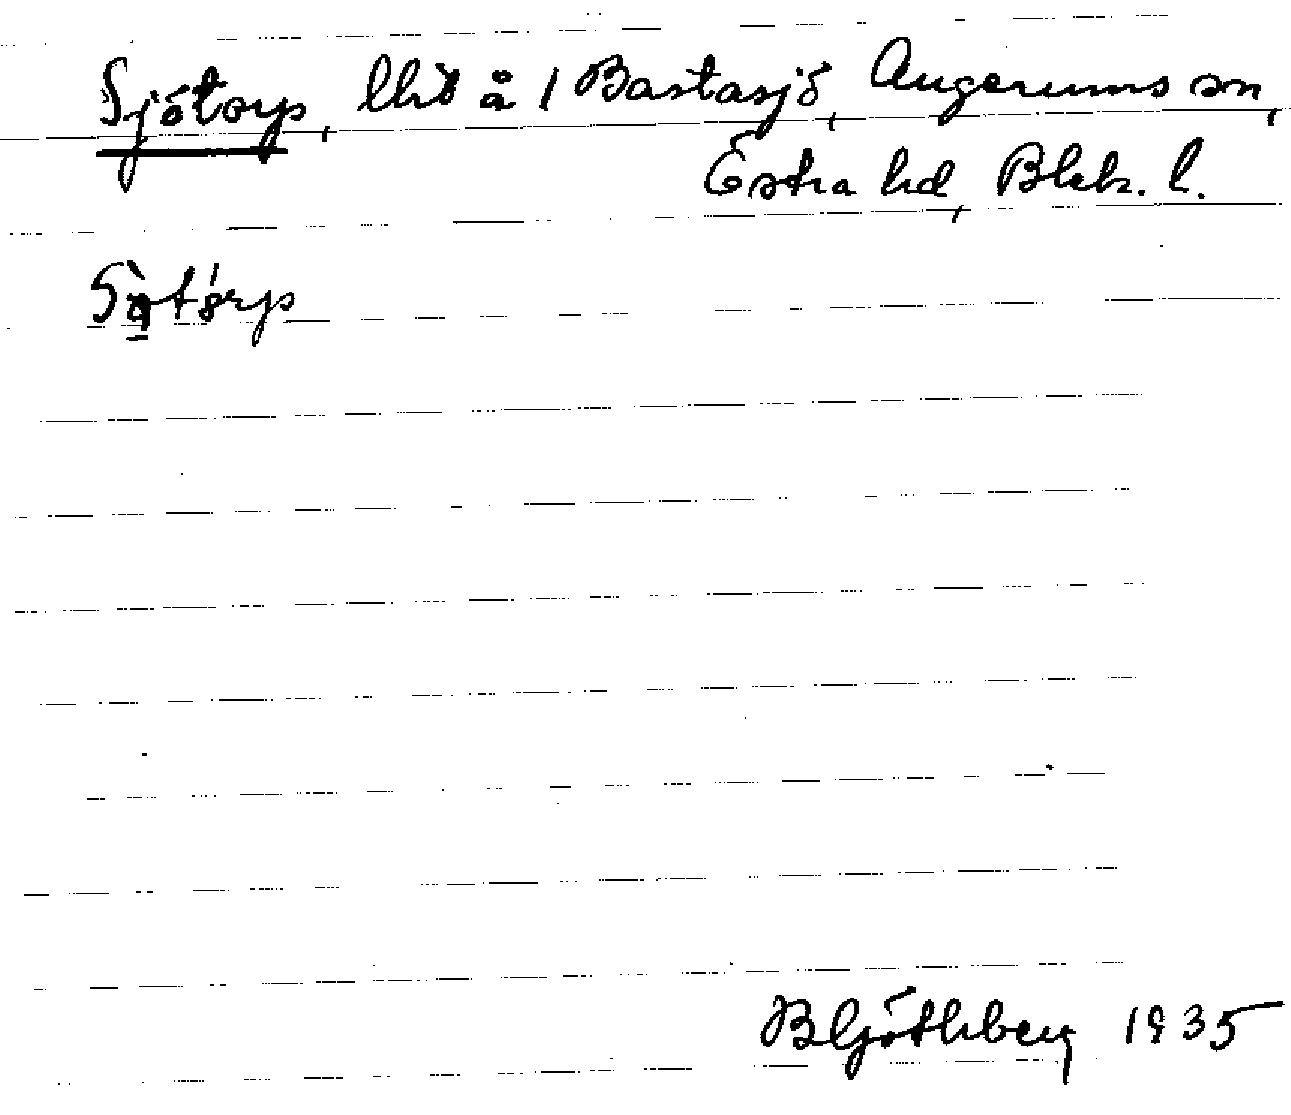 Sjötorp, lht å 1 Bastasjö, Augerums sn,
Östra hd, Blek. l.
B Göthberg 1935